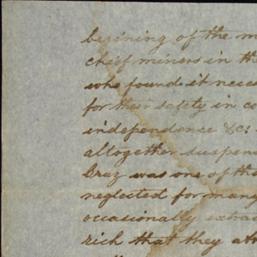 begining of the m
chief miners in th
who found it nece
for their safety in co
independence &c:
altogether suspen
Cruz was one of the
neglected for many
occasionally extra
rich that they att